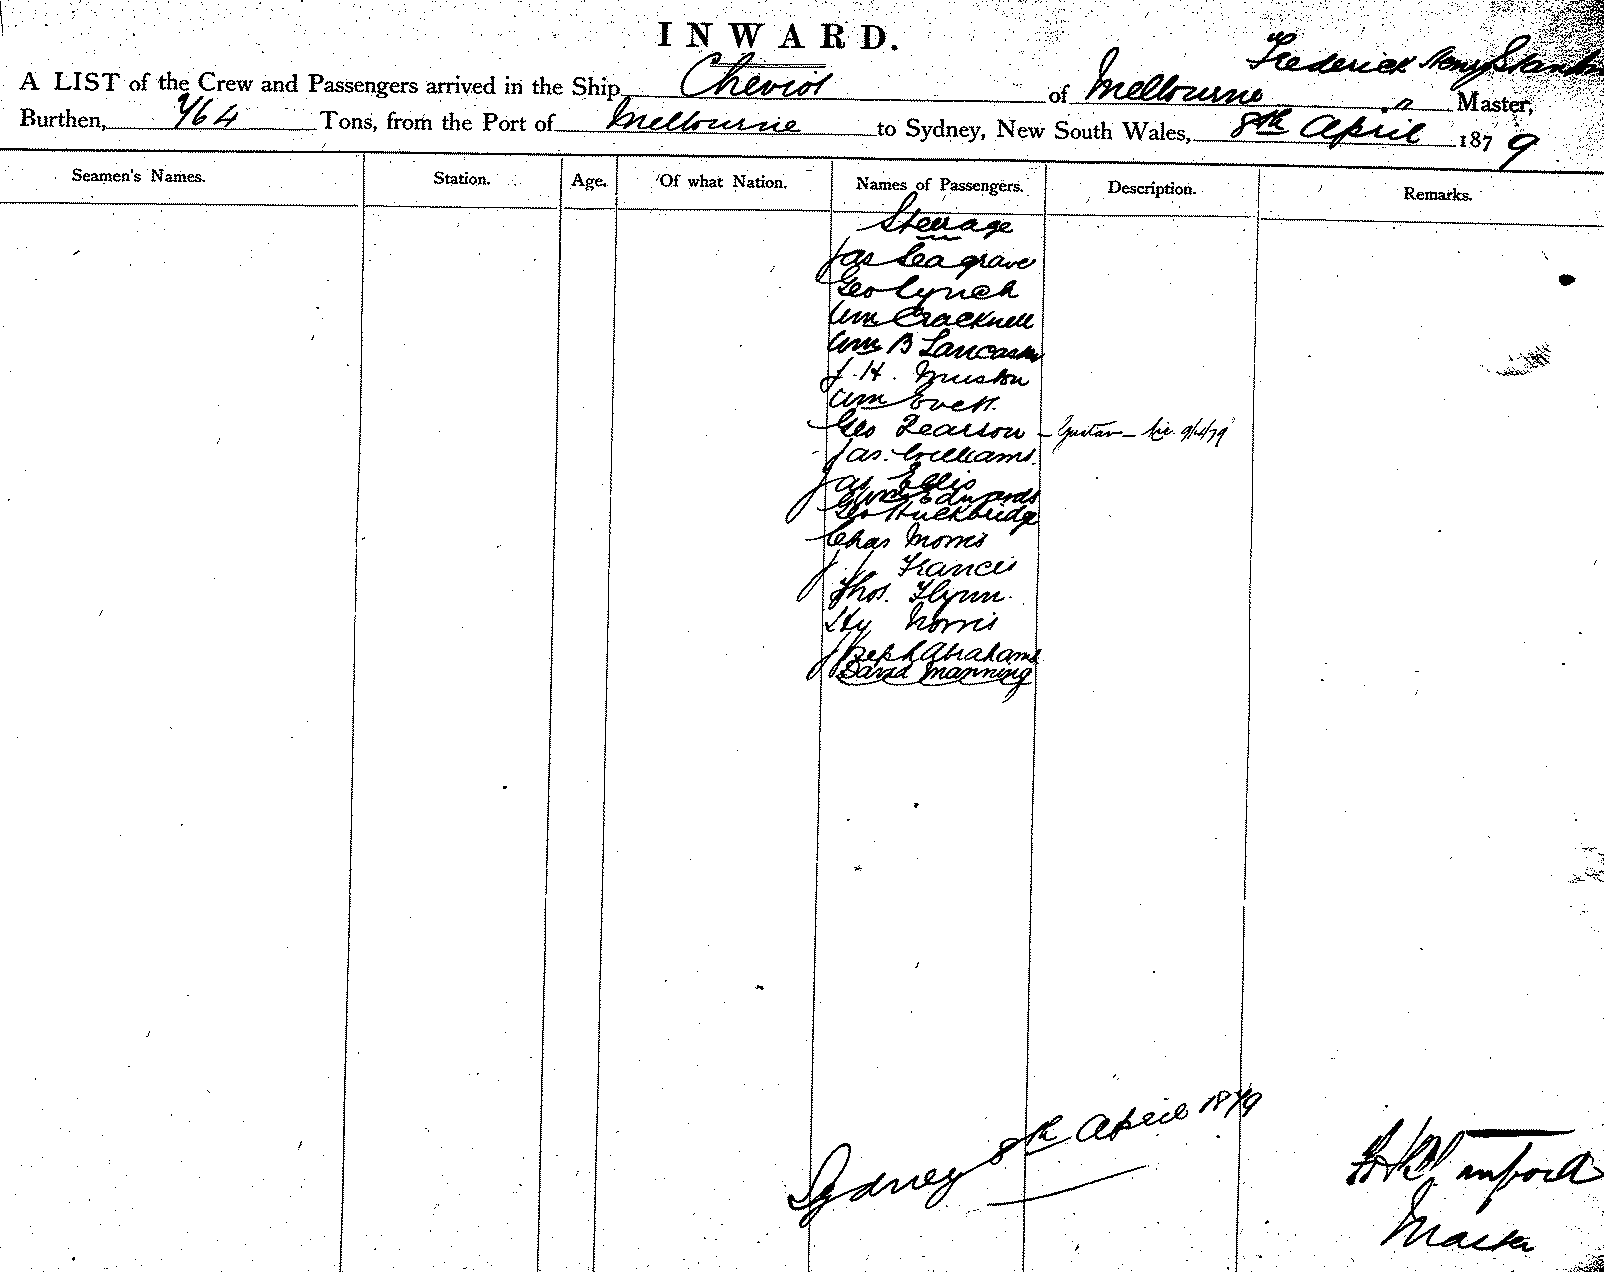 INWARD.
Frederick Henry
A LIST of the Crew and Passengers arrived in the Ship Cheviot of Melbourne " Master,
Burthen, 764 Tons, from the Port of Melbourne to Sydney, New South Wales, 8th April 1879
Seamen's Names. Station. Age. Of what Nation. Names of Passengers. Description. Remarks.
Steerage
Jas Seagrave
Geo Lynch
Wm Cracknell
Wm B Lancaster
J. H.
Wm Evett
Geo Pearson
Jas. Williams
Jas Ellis
Edwards
Geo Huckbridge
Chas Morris
J J Francis
Thos. Flynn
Hy Norris
Joseph Abrahams
David Manning
Sydney 8th April 1879
F H Stanford
Master